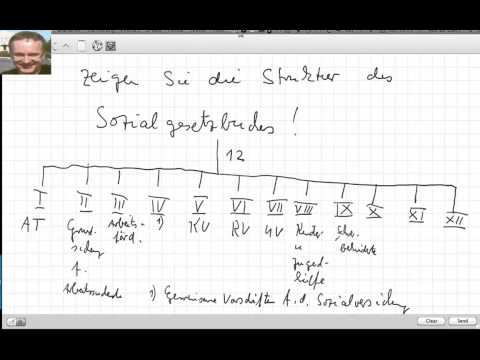 Zeigen Sie die Struktur des
Sozialgesetzbuches!
12
I II III IV V VI VII VIII IX X XI XII
AT Grund- Arbeits- 1) KV RV UV Kinder Schw.
sicherung förd. u Behinderte
f. Jugend-
Arbeitssuchende hilfe
1) Gemeinsame Vorschriften f. d. Sozialversicherung
Clear Send